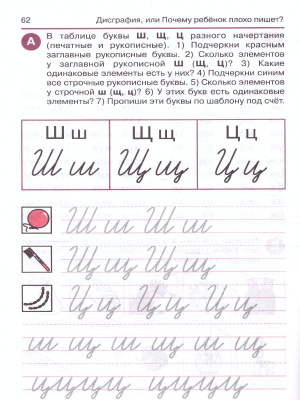 62 Дисграфия, или Почему ребёнок плохо пишет?
А
В таблице буквы Ш, Щ, Ц разного начертания
(печатные и рукописные). 1) Подчеркни красным
заглавные рукописные буквы. 2) Сколько элементов
у заглавной рукописной Ш (Щ, Ц)? 3) Какие
одинаковые элементы есть у них? 4) Подчеркни синим
все строчные рукописные буквы. 5) Сколько элементов
у строчной ш (щ, ц)? 6) У этих букв есть одинаковые
элементы? 7) Пропиши эти буквы по шаблону под счёт.
Ш ш Щ щ Ц ц
Ш ш Щ щ Ц ц
Ш ш Ш ш Ш ш
Щ щ Щ щ Щ щ
Ц ц Ц ц Ц ц Ц ц
ш щ ш щ ш щ ш
цццццццц